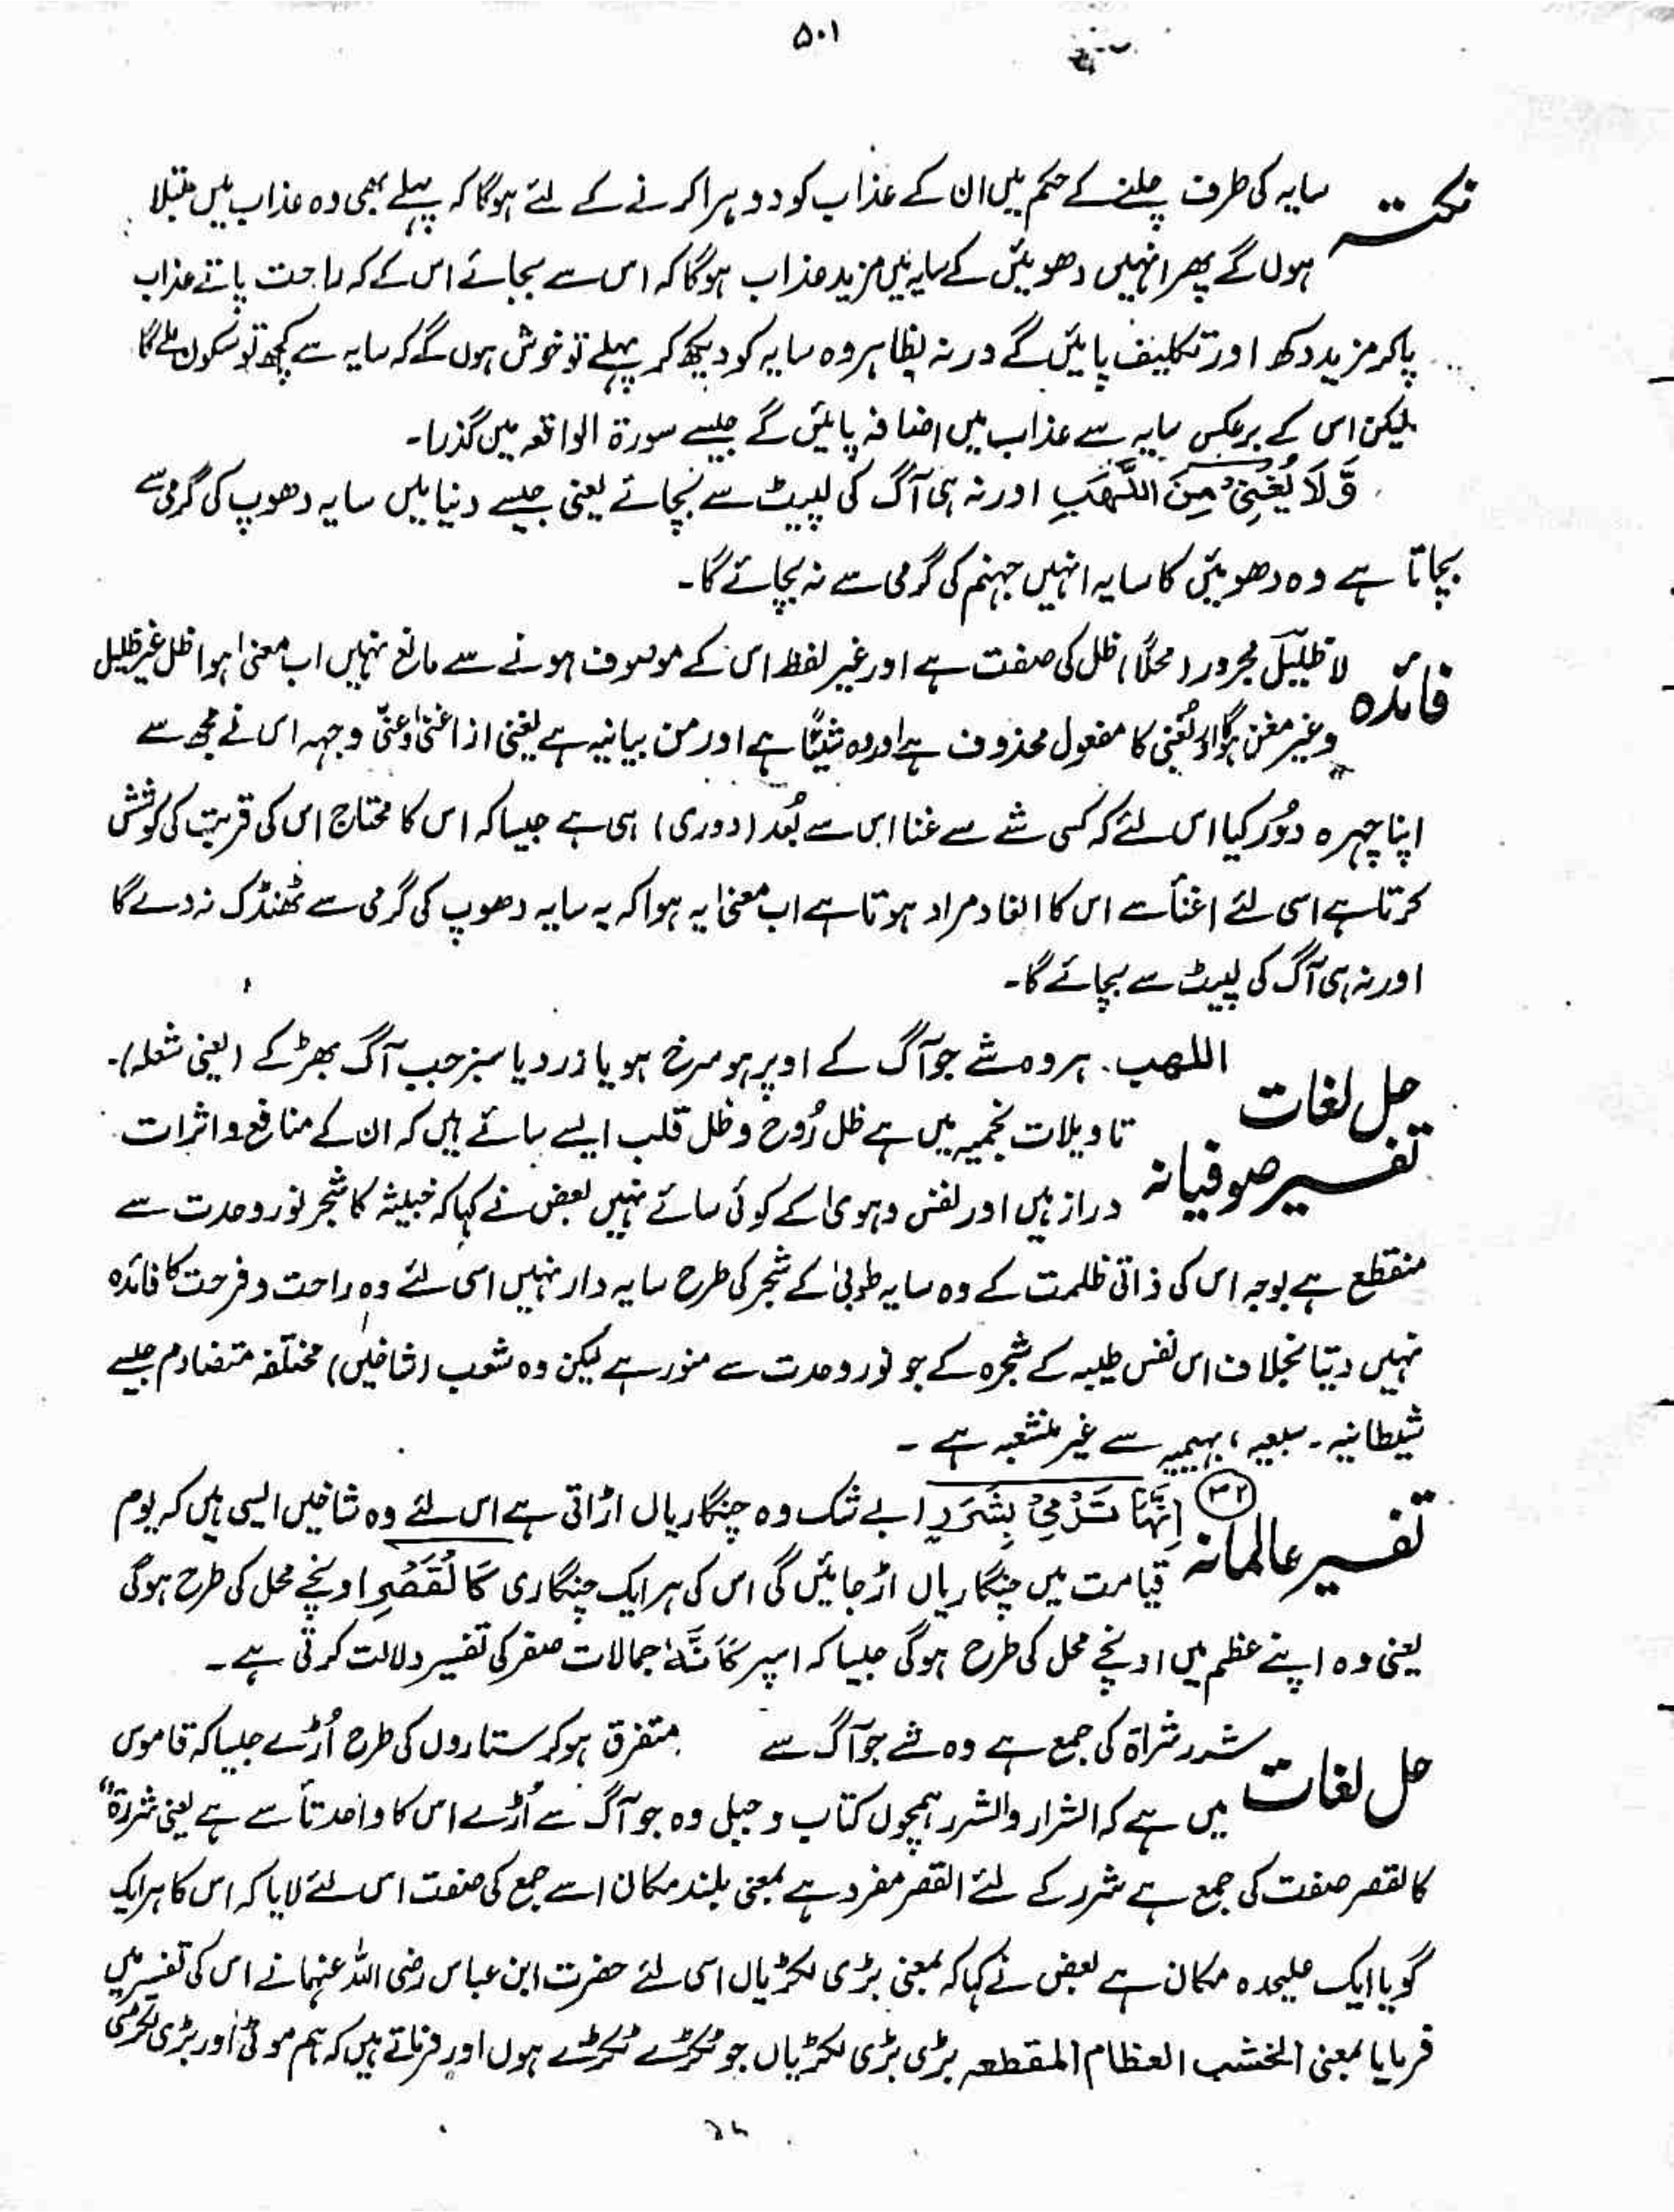 ۵۰۱
نکتہ سایہ کی طرف چلنے کے حکم میں ان کے عذاب کو دوہرا کرنے کے لئے ہوگا کہ پہلے بھی وہ عذاب میں مبتلا
ہوں گے پھر انہیں دھویئں کے سایہ میں مزید عذاب ہوگا کہ اس سے بجائے اس کے کہ راحت پاتے عذاب
پاکر مزید دکھ اور تکلیف پایئں گے ورنہ بظاہر وہ سایہ کو دیکھ کر پہلے تو خوش ہوں گے کہ سایہ سے کچھ تو سکون ملے گا
لیکن اس کے برعکس سایہ سے عذاب میں اضافہ پایئں گے جیسے سورۃ الواقعہ میں گذرا۔
وَّلَا يُغْنِيْ مِنَ اللَّهَبِ اور نہ ہی آگ کی لپیٹ سے بچائے یعنی جیسے دنیا میں سایہ دھوپ کی گرمی سے
بچاتا ہے وہ دھویئں کا سایہ انہیں جہنم کی گرمی سے نہ بچائے گا۔
فائدہ لا ظلیل مجرور (محلاً) ظل کی صفت ہے اور غیر لفظ اس کے موصوف ہونے سے مانع نہیں اب معنیٰ ہوا ظل غیر ظلیل
وغیر مغن ہوگا اور یُغنی کا مفعول محذوف ہے اور وہ شیئًا ہے اور من بیانیہ ہے یعنی از اغنیٰ عنّی وجہہ اس نے مجھ سے
اپنا چہرہ دُور کیا اس لئے کہ کسی شے سے غنا اس سے بُعد (دوری) ہی ہے جیسا کہ اس کا محتاج اس کی قربت کی کوشش
کرتا ہے اسی لئے اغنأ سے اس کا ابعاد مراد ہوتا ہے اب معنیٰ یہ ہوا کہ یہ سایہ دھوپ کی گرمی سے ٹھنڈک نہ دے گا
اور نہ ہی آگ کی لپیٹ سے بچائے گا۔
حل لغات اللھب۔ ہر وہ شے جو آگ کے اوپر ہو سرخ ہو یا زرد یا سبز جب آگ بھڑکے (یعنی شعلہ)۔
تفسیر صوفیانہ تاویلات نجمیہ میں ہے ظل رُوح و ظل قلب ایسے سائے ہیں کہ ان کے منافع و اثرات
دراز ہیں اور نفس و ہویٰ کے کوئی سائے نہیں بعض نے کہا کہ خبیثہ کا شجر نور وحدت سے
منقطع ہے بوجہ اس کی ذاتی ظلمت کے وہ سایہ طوبیٰ کے شجر کی طرح سایہ دار نہیں اسی لئے وہ راحت و فرحت کا فائدہ
نہیں دیتا بخلاف اس نفس طیبہ کے شجرہ کے جو نور وحدت سے منور ہے لیکن وہ شعب (شاخیں) مختلفہ متضادم جیسے
شیطانیہ۔ سبعیہ، بہیمیہ سے غیر منشعبہ ہے۔
تفسیر عالمانہ ۳۲ اِنَّهَا تَرْمِيْ بِشَرَرٍ (بے شک وہ چنگاریاں اڑاتی ہے اس لئے وہ شاخیں ایسی ہیں کہ یوم
قیامت میں چنگاریاں اڑ جایئں گی اس کی ہر ایک چنگاری كَالْقَصْرِ اونچے محل کی طرح ہوگی
یعنی وہ اپنے عظم میں اونچے محل کی طرح ہوگی جیسا کہ اسپر کَاَنَّهٗ جمالات صفر کی تفسیر دلالت کرتی ہے۔
حل لغات شرر شراۃ کی جمع ہے وہ شے جو آگ سے متفرق ہوکر ستاروں کی طرح اُڑے جیسا کہ قاموس
میں ہے کہ الشرار والشرر ہمچوں کتاب و جبل وہ جو آگ سے اُڑے اس کا واحد تأ سے ہے یعنی شررۃ"
کالقصر صفت کی جمع ہے شرر کے لئے القصر مفرد ہے بمعنی بلند مکان اسے جمع کی صفت اس لئے لایا کہ اس کا ہر ایک
گویا ایک علیحدہ مکان ہے بعض نے کہا کہ بمعنی بڑی لکڑیاں اسی لئے حضرت ابن عباس رضی اللہ عنہما نے اس کی تفسیر میں
فرمایا بمعنی الخشب العظام المقطعہ بڑی بڑی لکڑیاں جو ٹکڑے ٹکڑے ہوں اور فرماتے ہیں کہ ہم موٹی اور بڑی لکڑی